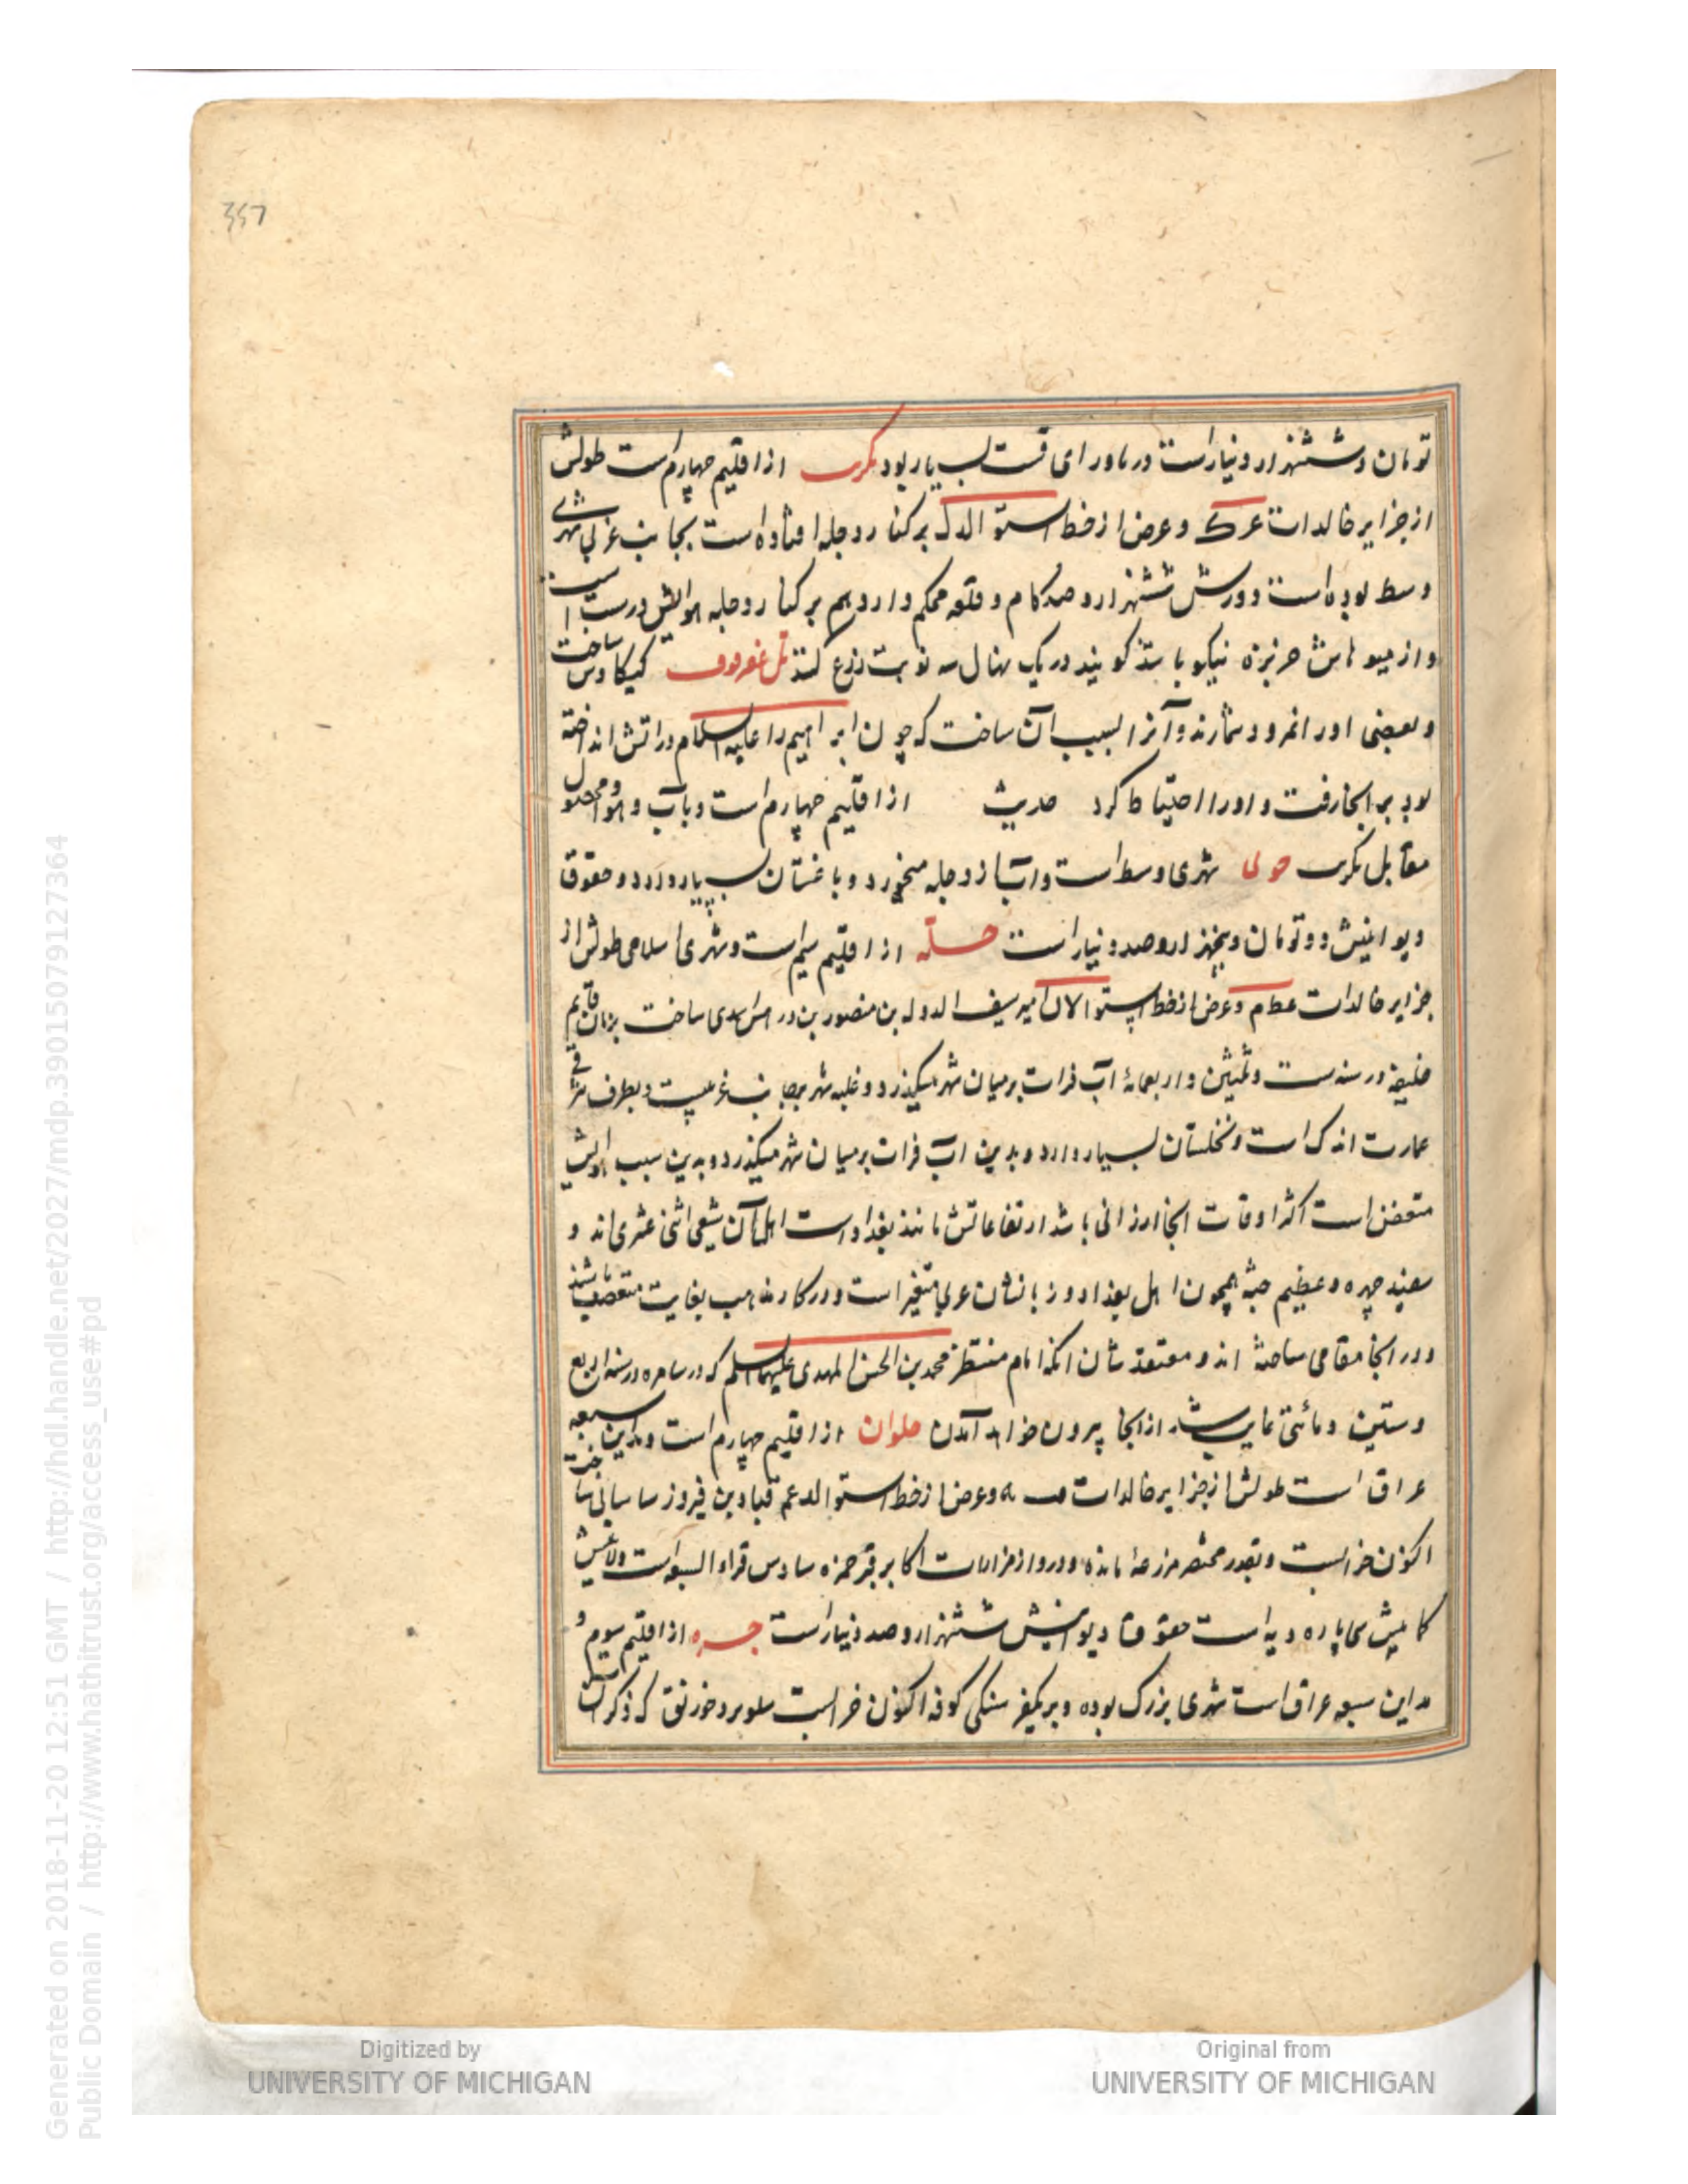 357
تومان و ششهزار دینار است و ماورای قست بسیار بود تکریت از اقلیم چهارم است طولش
از جزایر خالدات عرک و عرض از خط استوا الدک بر کنار دجله افتاده است بجانب غربی شهری
وسط بوده است دورش ششهزار و صد کام و قلعه محکم دارد هم بر کنار دجله هوایش درست است
و از میوهاش خربزه نیکو باشد کویند در یک نهال سه نوبت زرع کنند تل عقرقوف کیکاوس ساخت
و بعضی او را نمرود شمارند و آنرا بسبب آن ساخت که چون ابراهیم را علیه السلام در اتش انداخته
بود بر انجا رفت و او را احتیاط کرد حدیث از اقلیم چهارم است و باب و هوا و محصول
مقابل تکریت حربی شهری وسط است و ابش از دجله میخورد و باغستان بسیار دارد و حقوق
دیوانیش دو تومان و پنجهزار و صد دینار است حله از اقلیم سیم است و شهری اسلامی طولش از
جزایر خالدات عطام و عرض از خط استوا الان امیر سیف الدوله بن منصور بن اسدی ساخت بزمان قایم
خلیفه در سنه ست و ثلثین و اربعمائه آب فرات بر میان شهر میگذرد و غلبه شهر بر جانب غربیست و بطرف شرقی
عمارت اندک است و نخلستان بسیار دارد و بدین اب فرات بر میان شهر میگذرد و بدین سبب هوایش
متعفن است اکثر اوقات انجا ارزانی باشد ارتفاعاتش مانند بغداد است اهل آن شیعی اثنی عشری اند و
سفید چهره و عظیم جثه همچون اهل بغداد و زبانشان عربی متغیر است و در کار مذهب بغایت متعصب باشند
و در انجا مقامی ساخته اند و معتقدشان انکه امام منتظر محمد بن الحسن المهدی علیهما السلم که در سامره در سنه اربع
و ستین و مائتی غایب شد از انجا بیرون خواهد آمدن حلوان از اقلیم چهارم است و مداین سبعه
عراق است طولش از جزایر خالدات و عرض از خط استوا الدعم قباد بن فیروز ساسانی ساخت
اکنون خرابست و بقدر مختصر مزرعهٔ مانده و در و از مزارات اکابر قبر حمزه سادس قراء السبعه است ولایتش
کمابیش سی پاره دیه است حقوق دیوانیش ششهزار و صد دینار است حیره از اقلیم سوم و
مداین سبعه عراق است شهری بزرک بوده و بر یکفرسنکی کوفه اکنون خرابست سدیر و خورنق که ذکر آن
Generated on 2018-11-20 12:51 GMT / http://hdl.handle.net/2027/mdp.39015079127364
Public Domain / http://www.hathitrust.org/access_use#pd
Digitized by
UNIVERSITY OF MICHIGAN
Original from
UNIVERSITY OF MICHIGAN